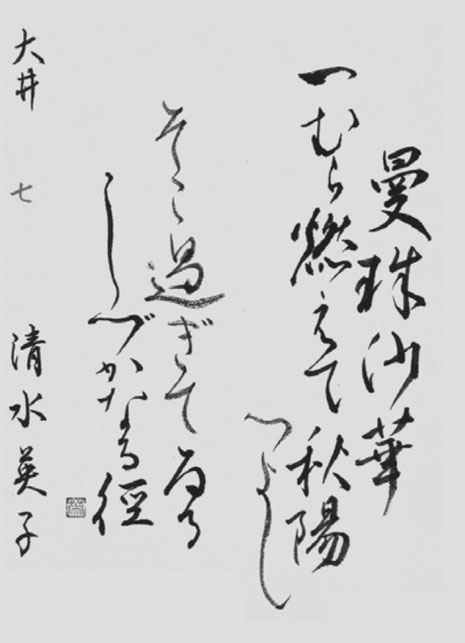 曼珠沙華
一むら燃えて秋陽
つよし
そこ過ぎてゐる
しづかなる径
大井 七 清水英子